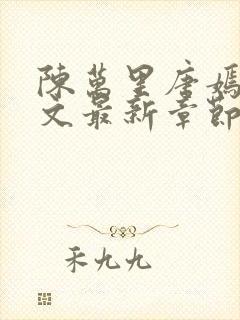 陳萬里唐嫣
文最新章節
禾九九